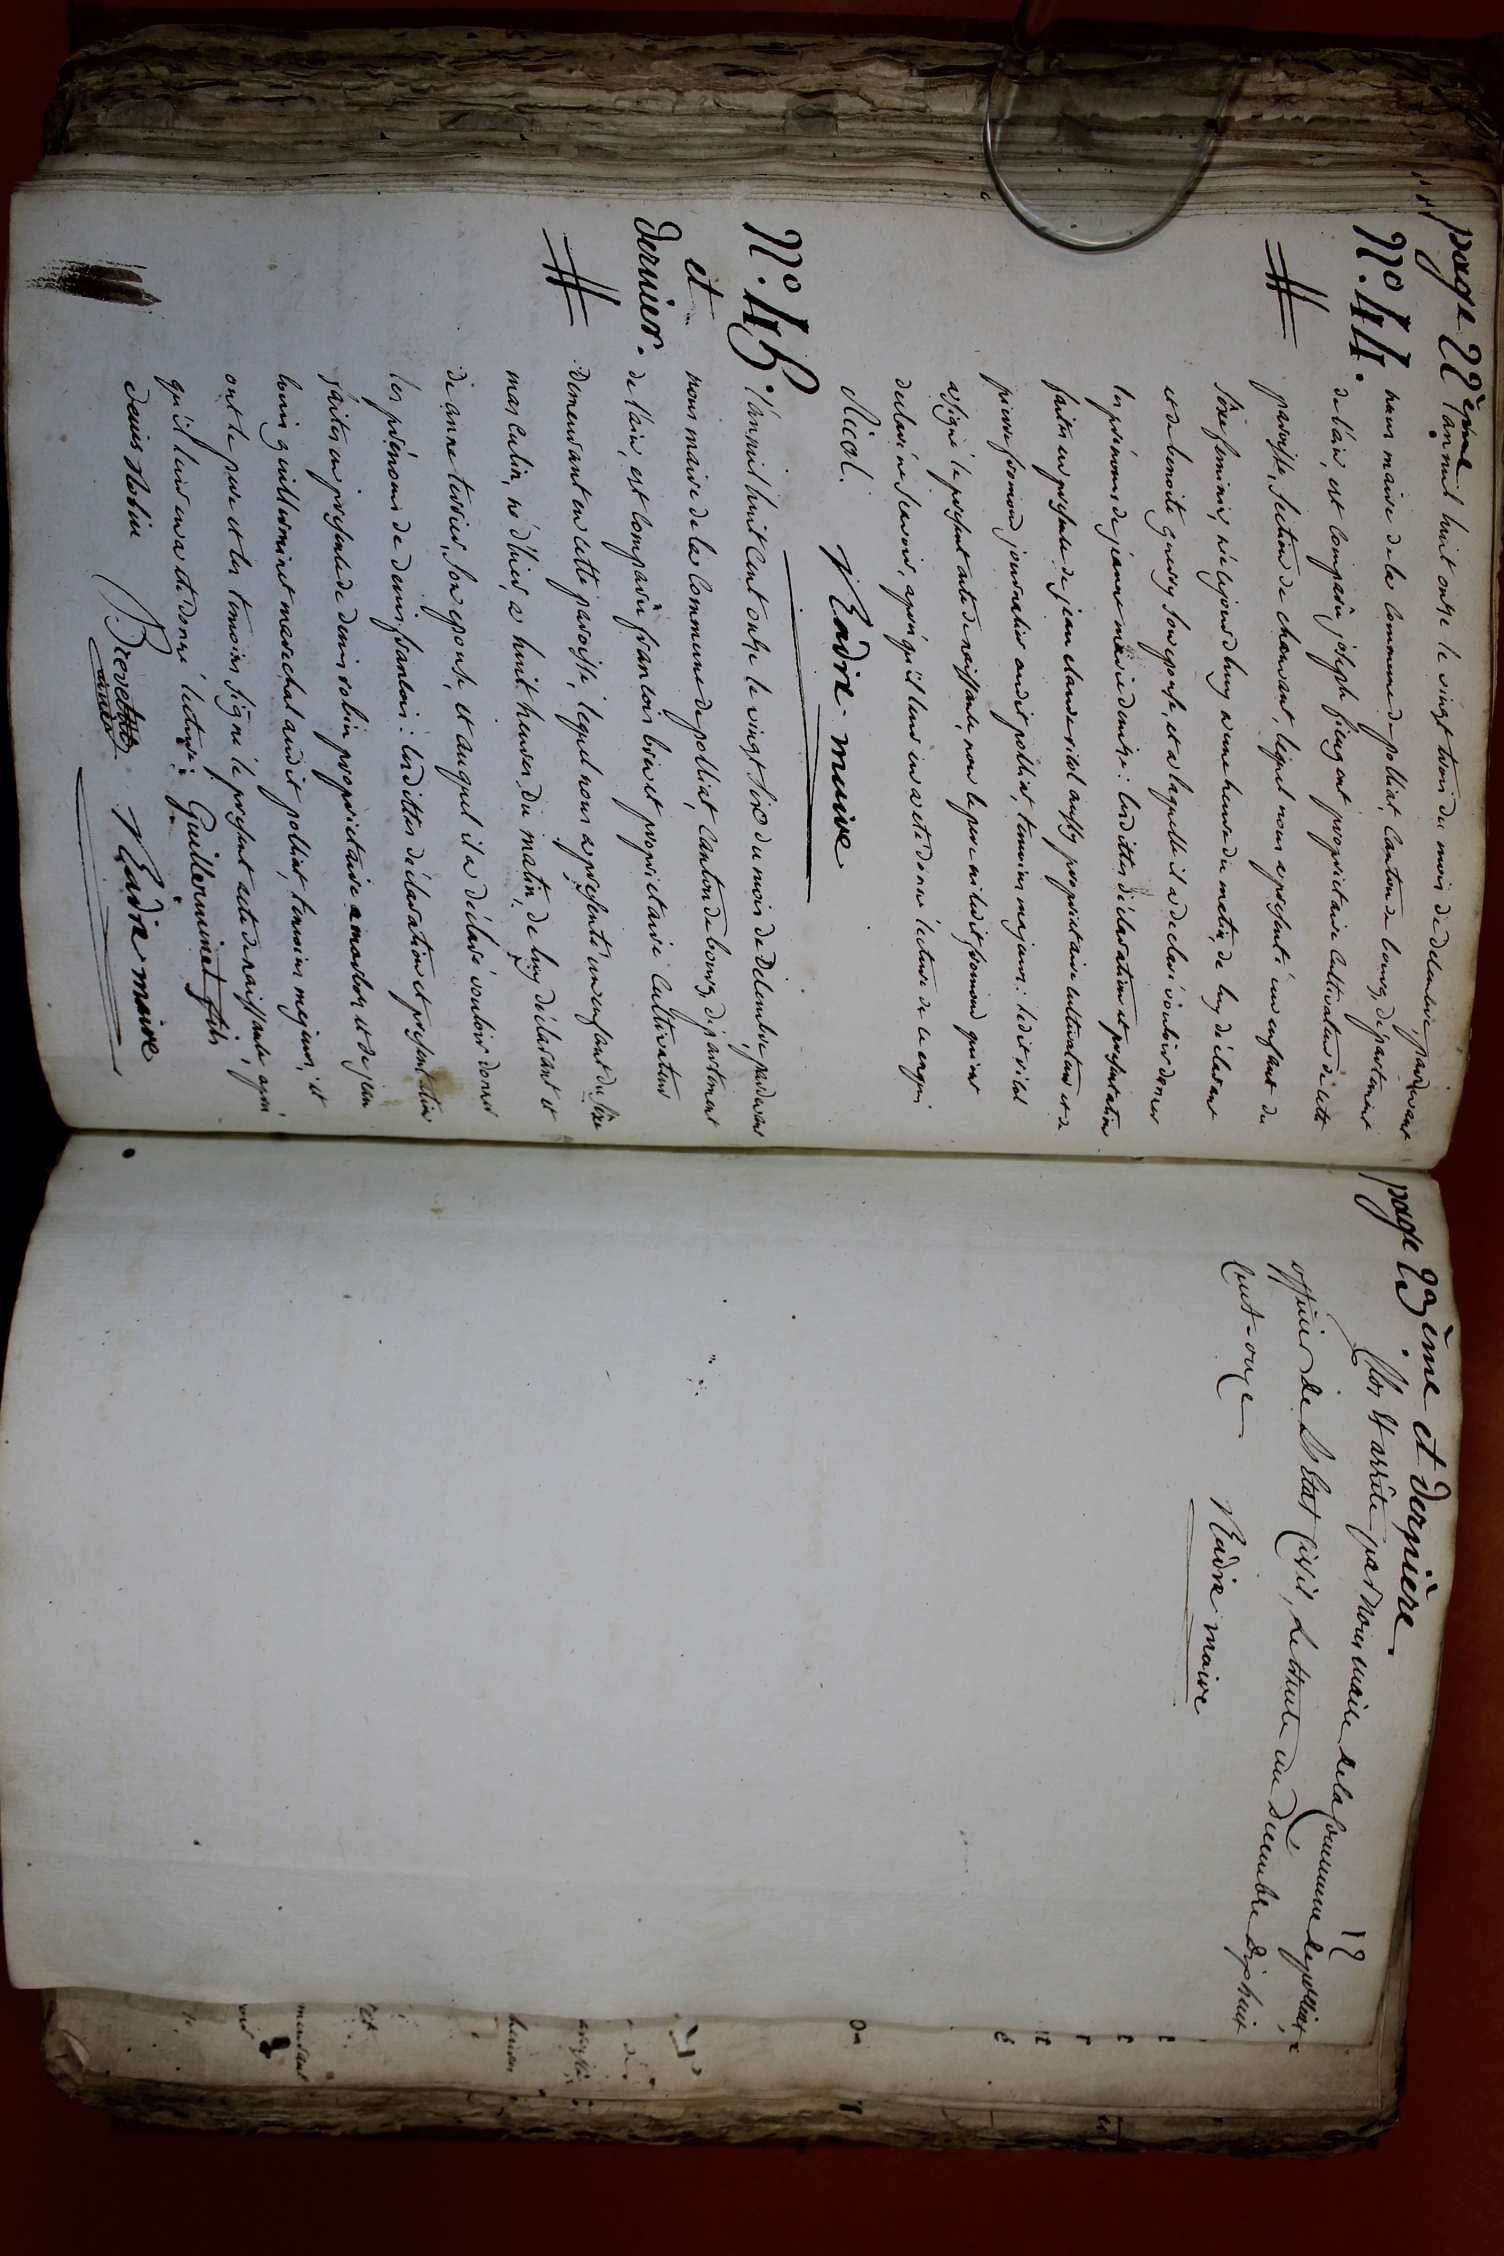 page 22ème
N.° 44.
L'an mil huit onze le vingt trois du mois de decembre, pardevant
nous maire de la commune de polliat, canton de bourg, departement
de l'ain, est comparu joseph proprietaire cultivateur de cette
paroisse, section de chanvant, lequel nous a presenté un enfant du
sexe feminin, né cejourd'huy a une heure du matin, de luy declarant
et de benoite son epouse, et a laquelle il a declaré vouloir donner
les prénoms de jeanne marie : lesdittes declaration et presentation
faites en presence de jean claude aussy proprietaire cultivateur et de
pierre journalier audit polliat, temoins majeurs : ledit
a signé le present acte de naissance, non le pere ni ledit qui ont
declaré ne sçavoir, apres qu'il leur en a eté donné lecture de ce enquis
Ricol. Eadre maire
N.° 45.
et
dernier.
L'an mil huit cent onze le vingt six du mois de Decembre, pardevant
nous maire de la commune de polliat, canton de bourg, departement
de l'ain, est comparu francois proprietaire cultivateur
demeurant en cette paroisse, lequel nous a presenté un enfant du sexe
masculin, né d'hier, a huit heures du matin, de luy déclarant et
de anne son epouse, et auquel il a déclaré vouloir donner
les prénoms de denis francois : lesdittes déclaration et presentation
faites en presence de denis robin proprietaire a et de jean
louis guillerminet marechal audit polliat, temoins majeurs, et
ont le pere et les temoins signé le present acte de naissance, apres
qu'il leur en a eté donné lecture. Guillerminet fils
denis Robin Eadre maire
page 23ème et dernière.
12
Clos et arrêté par Nous maire de la Commune de polliat,
officier de L'Etat Civil, le trente un Decembre dix huit
Cent-onze
Eadre maire